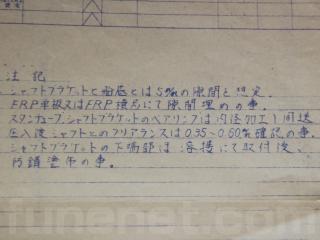 注記
シャフトブラケットと船底とは5%の隙間を想定.
FRP単板又はFRP積層にて隙間埋めの事.
スタンチューブ,シャフトブラケットのベアリングは内径加工し
圧入後シャフトとのクリアランスは0.55~0.60%確認の事.
シャフトブラケットの下端部は溶接にて取付後,
防錆塗布の事.
funenet.com